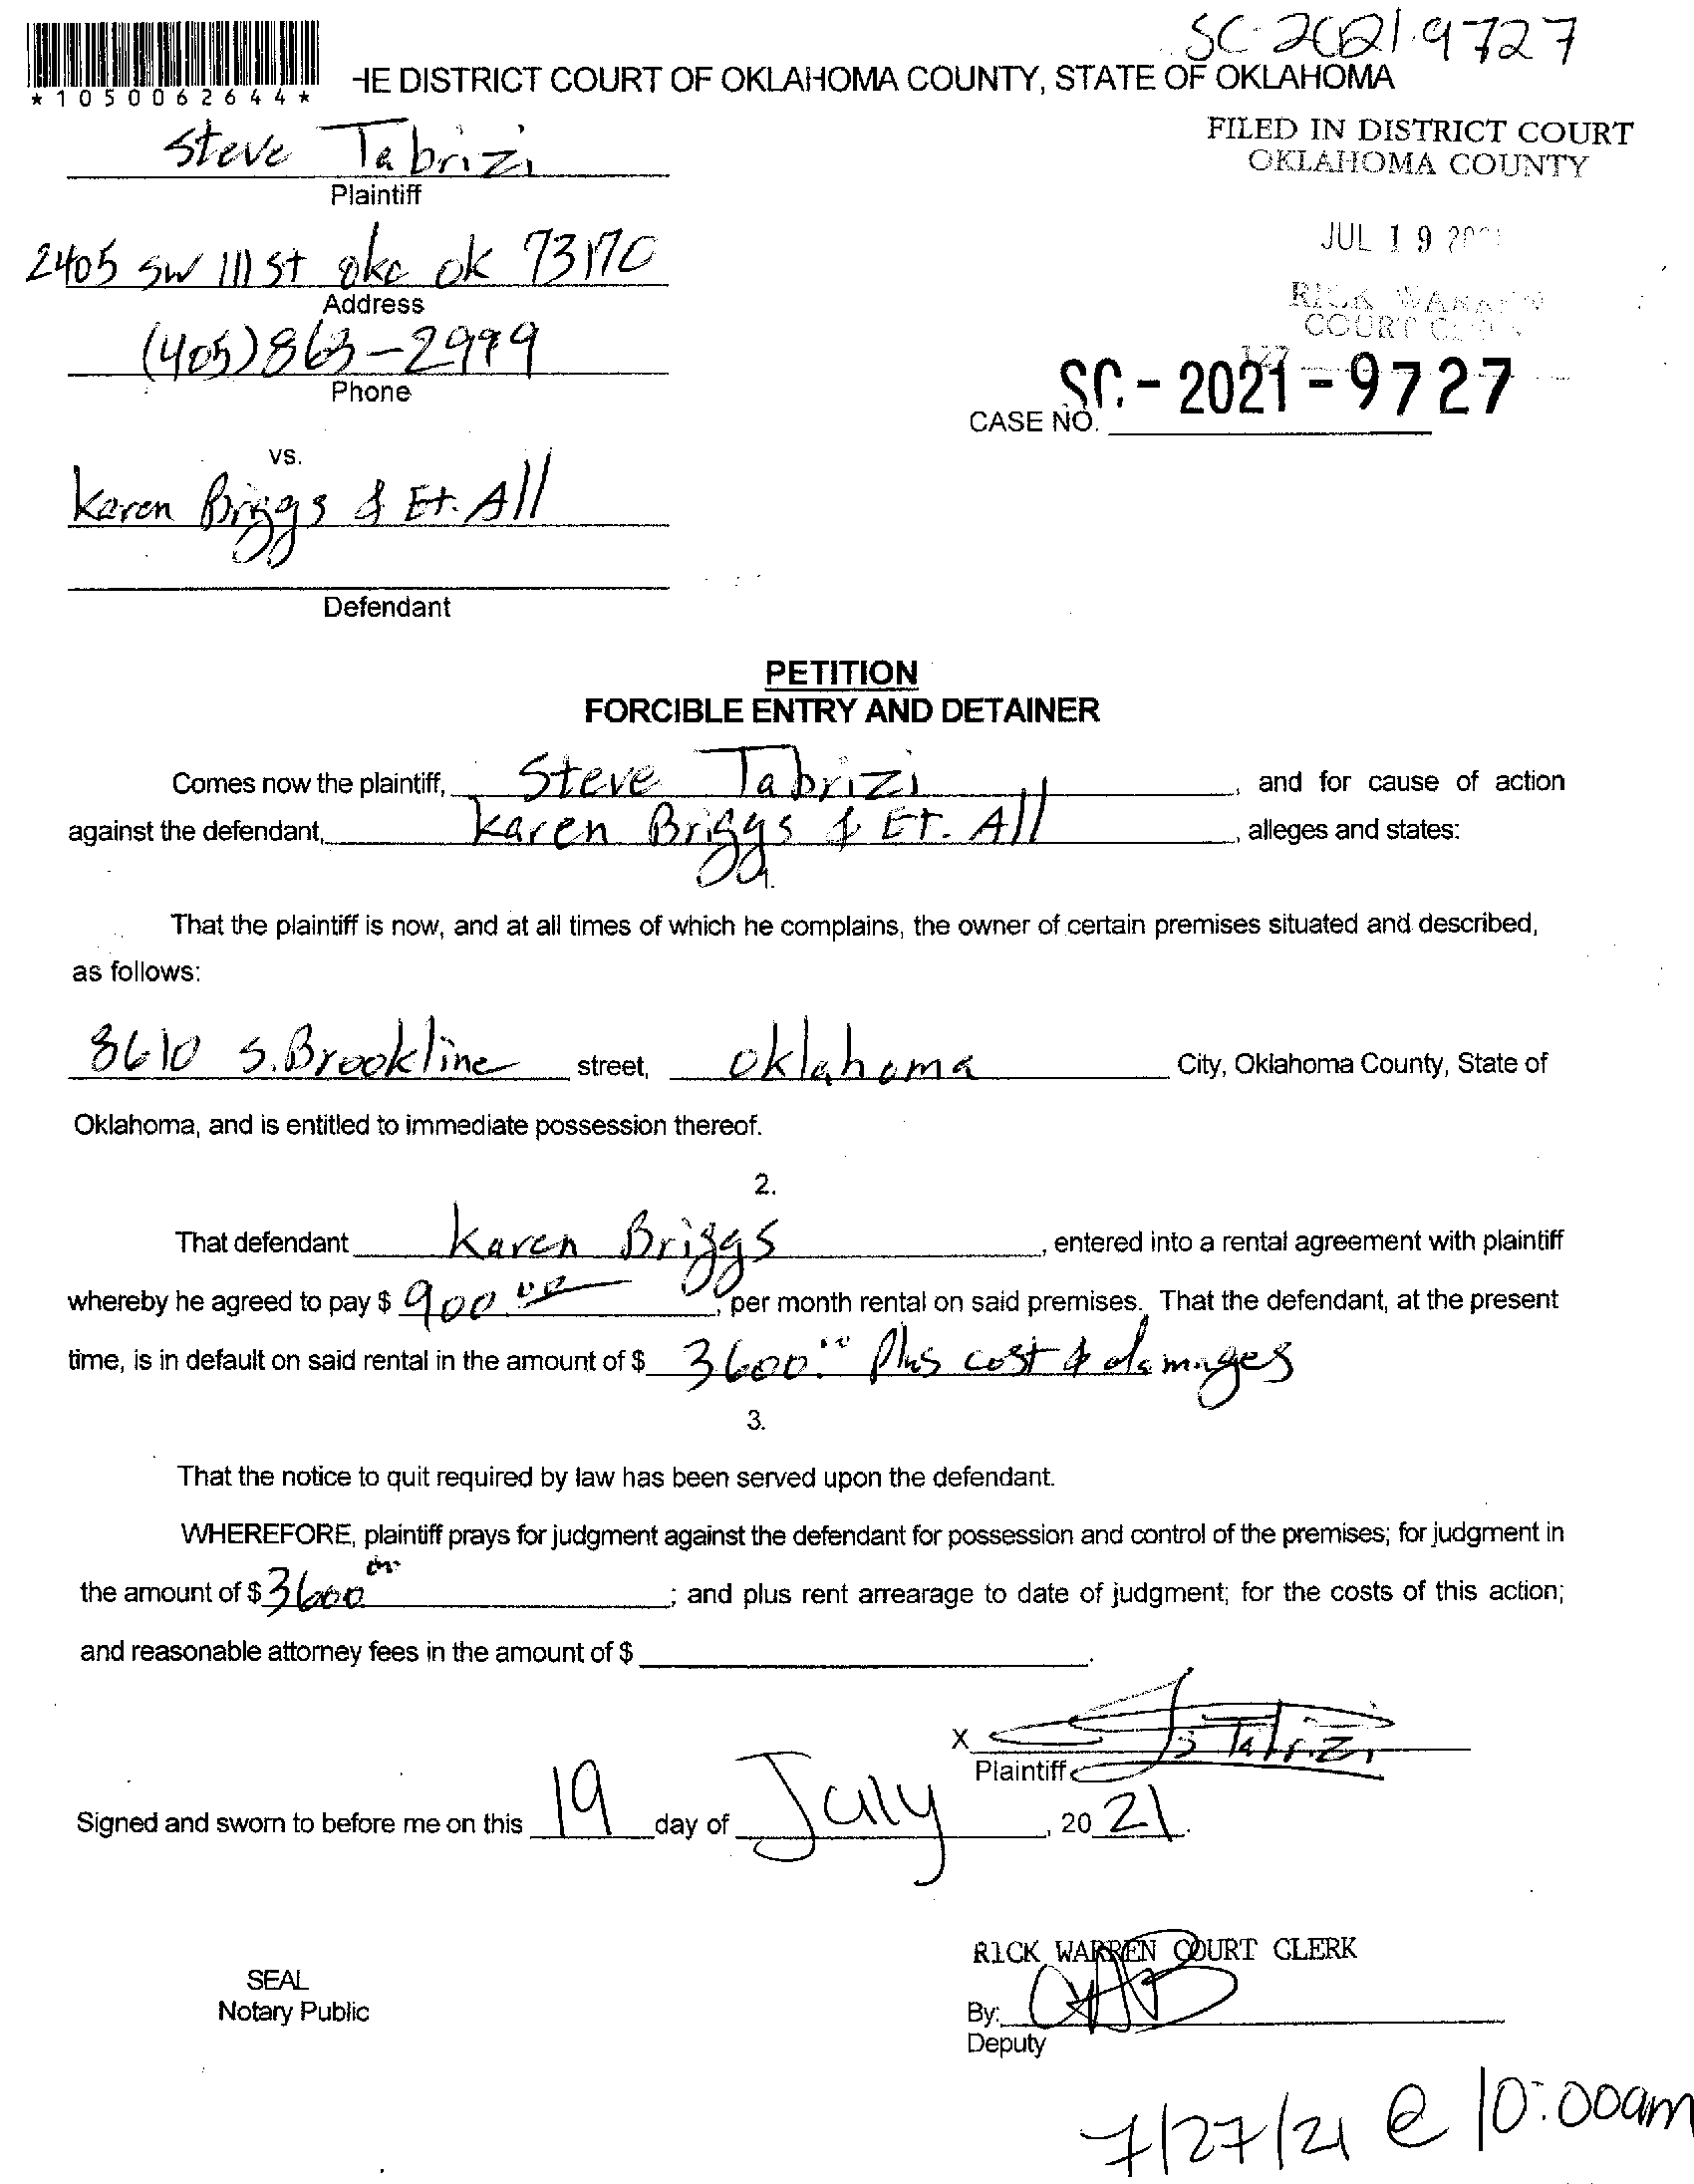 SC-2021-9727
*1050062644*
HE DISTRICT COURT OF OKLAHOMA COUNTY, STATE OF OKLAHOMA
FILED IN DISTRICT COURT
OKLAHOMA COUNTY
Steve Tabrizi
Plaintiff
JUL 19
2405 SW 111 St okc ok 73170
Address
RICK WARREN
COURT
(405) 863-2999
Phone
CASE NO. SC.-2021-9727
vs.
Karen Briggs & Et. All
Defendant
PETITION
FORCIBLE ENTRY AND DETAINER
Comes now the plaintiff, Steve Tabrizi, and for cause of action
against the defendant, Karen Briggs & Et. All, alleges and states:
1.
That the plaintiff is now, and at all times of which he complains, the owner of certain premises situated and described,
as follows:
3610 S. Brookline street, oklahoma City, Oklahoma County, State of
Oklahoma, and is entitled to immediate possession thereof.
2.
That defendant Karen Briggs, entered into a rental agreement with plaintiff
whereby he agreed to pay $ 900.00, per month rental on said premises. That the defendant, at the present
time, is in default on said rental in the amount of $ 3600.00 Plus cost & damages
3.
That the notice to quit required by law has been served upon the defendant.
WHEREFORE, plaintiff prays for judgment against the defendant for possession and control of the premises; for judgment in
the amount of $ 3600 ; and plus rent arrearage to date of judgment; for the costs of this action;
and reasonable attorney fees in the amount of $ .
X Tabrizi
Plaintiff
Signed and sworn to before me on this 19 day of July, 20 21.
RICK WARREN COURT CLERK
SEAL
Notary Public
By:
Deputy
7/27/21 @ 10:00am